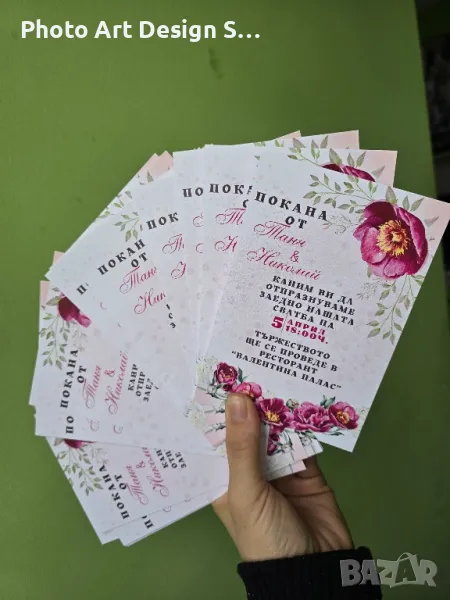 Photo Art Design S...
ПОКАНА
ОТ
Таня
&
Николай
КАНИМ ВИ ДА
ОТПРАЗНУВАМЕ
ЗАЕДНО НАШАТА
СВАТБА НА
5 АПРИЛ
18:00Ч.
ТЪРЖЕСТВОТО
ЩЕ СЕ ПРОВЕДЕ В
РЕСТОРАНТ
"ВАЛЕНТИНА ПАЛАС"
ПОКАНА
ПО
ПОКАН
ОТ
Таня
&
Ник
ПОКАНА
ОТ
Таня
&
Николай
КАНИ
ОТПР
ЗАЕД
ПО
ПОКАНА
ОТ
BAZAR